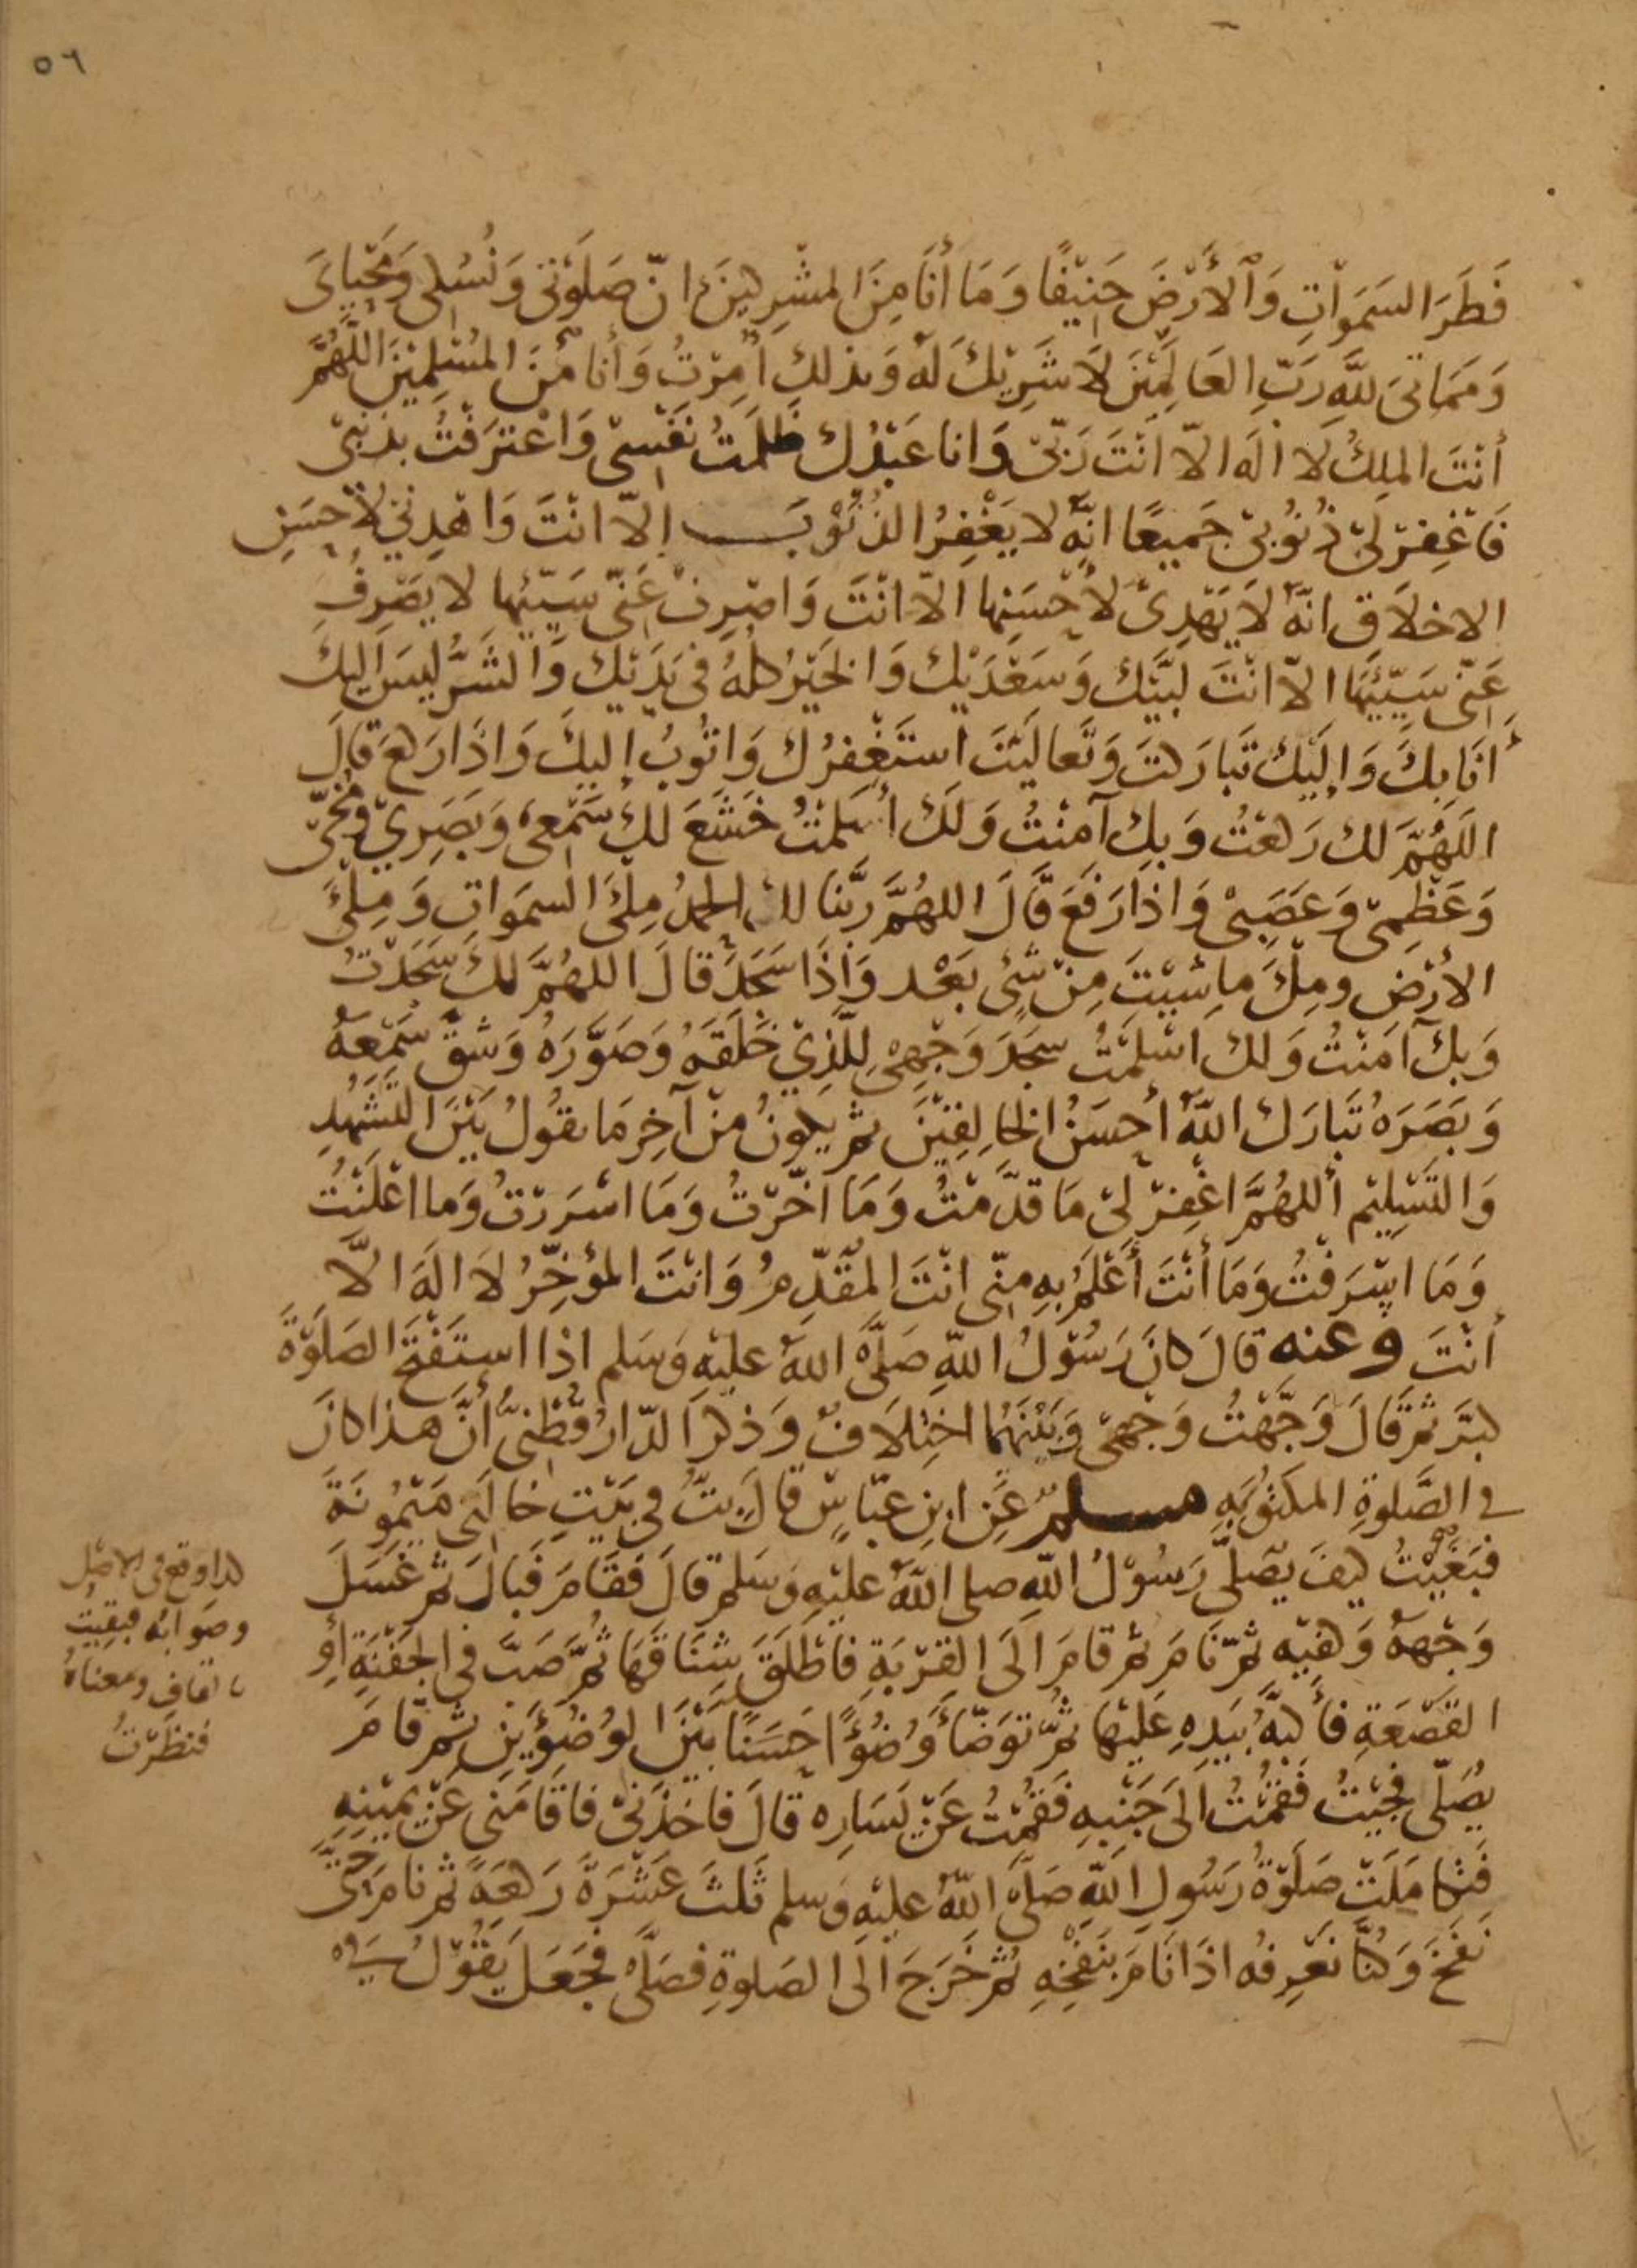 ٥٦
فَطَرَ السَمَوَاتِ وَٱلأَرْضَ حَنِيْفًا وَمَا أنَا مِنَ المشْرِكِينَ انّ صَلَوتي وَنُسُكي وَمَحْيايَ
وَمَمَاتى لِلَّهِ رَبِّ العَالَمِيْنَ لَا شَرِيْكَ لَهُ وَبذلك اُمِرْتُ وَأنا مِنَ المُسْلِمِيْنَ اللَّهُمَّ
أنْتَ الملِكُ لَا الَه الاّ انْتَ رَبّى وَانا عَبْدُك ظَلَمْتُ نَفْسِى وَاعْترَفْتُ بذَنْبى
فَاغْفِرْ لىْ ذُنُوبىْ جَميعًا انّهُ لا يَغْفِرُ الذُنُوْبَ إلاّ انْتَ وَاهْدِنِي لأحسَنِ
الاخلَاقِ انّهُ لَا يَهْدِى لأحْسَنِها الاّ انْتَ وَاصْرِفْ عَنّى سَيّئها لا يَصْرِفُ
عَنّى سَيّئَهَا الاّ انْتَ لَبَّيْكَ وَسَعْدَيْكَ وَالخَيْرُ كلُّهُ فى يَدَيْكَ وَالشَرُّ لَيسَ اِليكَ
أنَا بِكَ وَإلَيْكَ تَبَارَكتَ وَتَعالَيْتَ استَغْفِرُكَ وَاتُوْبُ إليكَ وَاذَا رَكَعَ قالَ
اللَهُمَّ لك رَكَعْتُ وَبكَ آمنْتُ وَلَكَ أسْلَمْتُ خَشَعَ لكَ سَمْعى وَبَصَرِي وَمُخّى
وَعَظْمىّ وَعَصَبىْ وَاذا رَفَعَ قَالَ اللهُمَّ رَبَّنا لك الحمدُ مِلَئَ السمَوَاتِ وَمِلْئَ
الأرْضِ ومِلْئَ ما شِيْتَ مِنْ شَئ بَعْد وَاذَا سَجَدَ قالَ اللهُمَّ لكَ سَجَدْتُ
وَبكَ آمَنْتُ وَلك اسْلَمْتُ سَجَدَ وَجْهىْ لِلَّذِي خَلَقَهُ وَصَوَّرَهُ وَشقَّ سَمْعَهُ
وَبَصَرَهُ تَبَارَك اللهُ أحسَنُ الخالِقِيْنَ ثم يكونُ منْ آخِرِ مَا يقُولُ بَيْنَ التَشَهُدِ
وَالتَسْلِيْمِ أللهُمَّ اغْفِرْ لىْ مَا قدَّمْتُ وَمَا اخّرْتُ وَمَا اسْرَرْتُ وَما اعْلَنْتُ
وَمَا اسْرَفْتُ وَمَا أنْتَ أعْلَمُ بهِ مِنّى انْتَ المُقَدِّمُ وَانْتَ المؤخِّرُ لَا الَهَ الاَّ
أنْتَ وعنه قالَ كانَ رَسُوْلُ اللّهِ صَلَّى اللهُ عليْهِ وَسَلم اذا استَفْتَحَ الصَلَوْةَ
كبَّرَ ثمَّ قَالَ وَجَّهْتُ وَجْهىَ وَبَيْنَهُما اخْتِلَافٌ وَذكَر الدّارُقُطْنىُّ أنَّ هذا كانَ
في الصَّلوةِ المكتُوبَةِ مسلمٌ عَنِ ابنِ عبّاسٍ قالَ بتُّ في بَيْتِ خالَتى مَيْمُونَةَ
فبَغَيْتُ كيفَ يُصَلّى رَسُوْلُ اللهِ صلى اللهُ عليْهِ وَسَلم قالَ فَقَامَ فَبالَ ثم غسَلَ
وَجْهَهُ وَكفيْهِ ثمّ نَامَ ثم قامَ الَى القِرْبَةِ فاَطْلَقَ شِنَاقَهَا ثُمَّ صَبَّ فى الجَفْنَةِ أوِ
القَصْعَةِ فأكبَّهُ بيَدِهِ عَلَيْها ثمَّ تَوَضّأ وُضُوْءًا حَسَنًا بَيْنَ الوُضُؤَيْنِ ثم قامَ
يُصَلّى فجِيْتُ فَقُمْتُ الَى جَنْبِهِ فَقُمْتُ عَنْ يَسَارِهِ قالَ فاخَذَنىْ فاقَامَنى عَنْ يَمِيْنِهِ
فتَكامَلَتْ صَلَوْةُ رَسُولِ اللهِ صَلَّى اللهُ عليْهِ وَسلم ثَلثَ عَشْرَةَ رَكعَةً ثم نامَ حَتَّى
نفَخَ وَكُنَّا نَعْرِفُه اذَا نَامَ بنَفْخِهِ ثُمّ خَرَجَ الَى الصَلوةِ فصَلَّى فجَعَلَ يَقُوْلُ في
كذا وقع فى الاصْل
وصَوابُه فبقيْتُ
بالقافِ ومعناهُ
فنَظَرْتُ